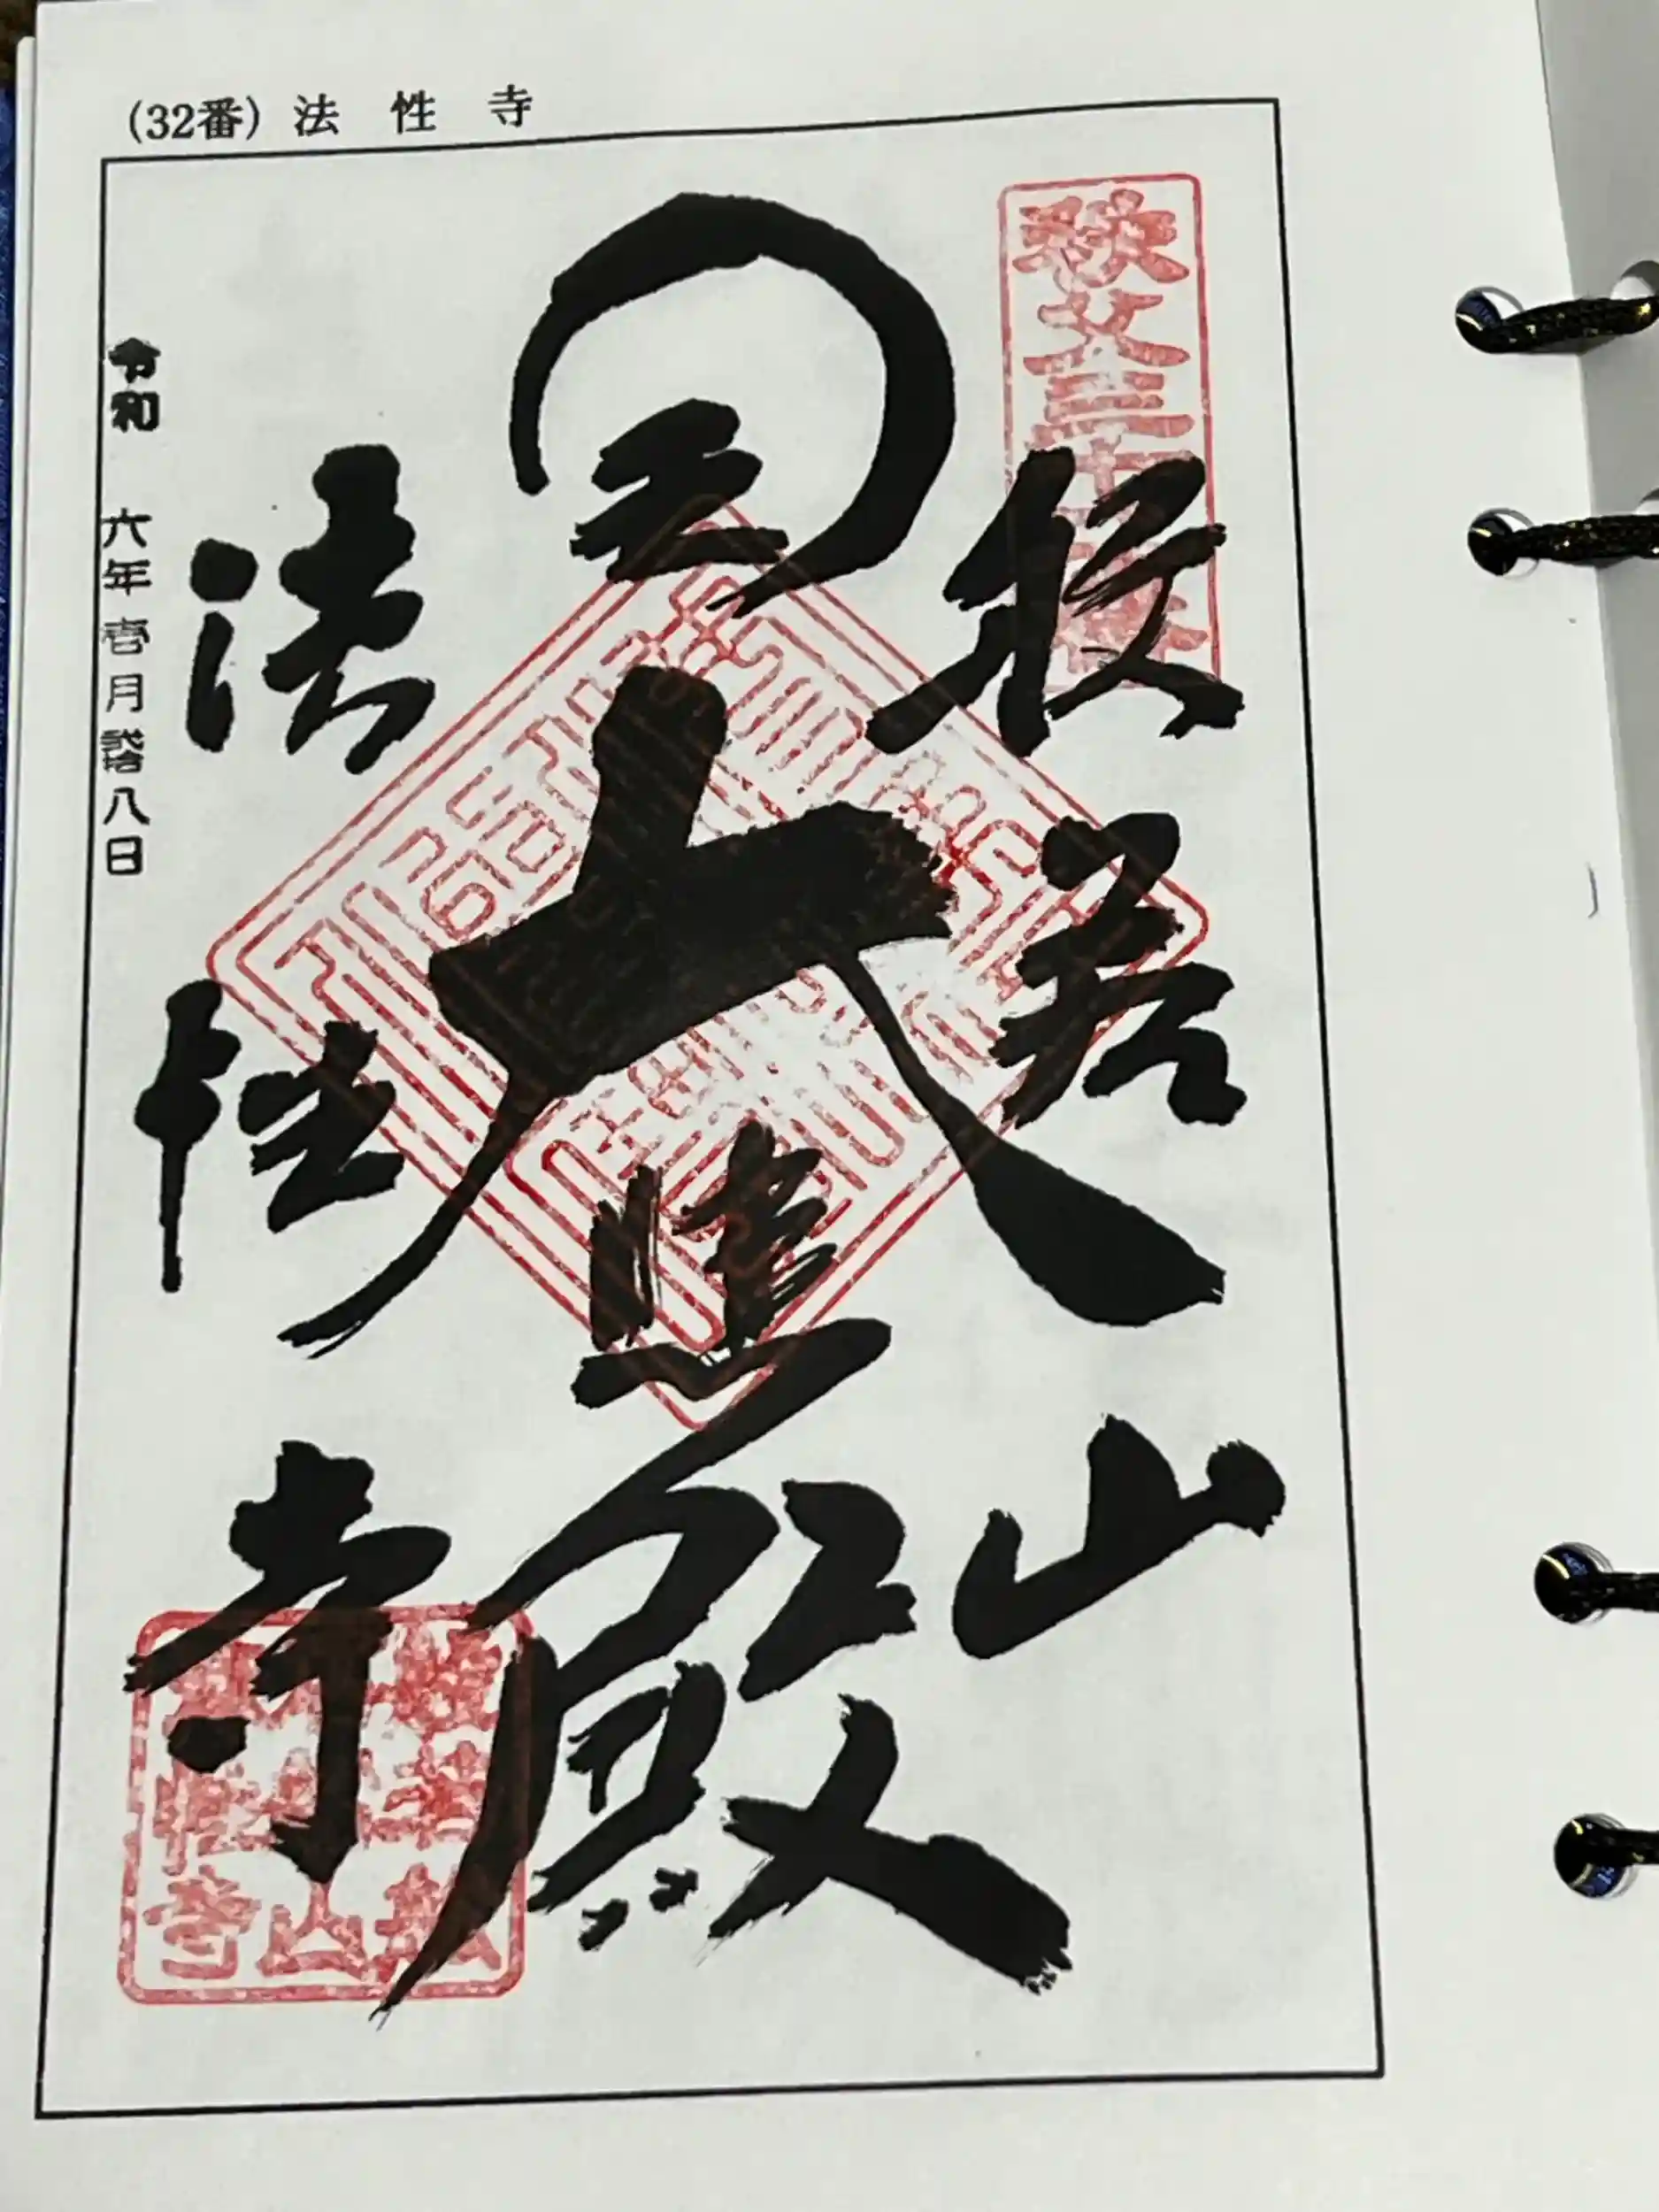 (32番) 法性寺
秩父三十二番
般若山
大悲殿
法性寺
令和 六年壱月弐拾八日